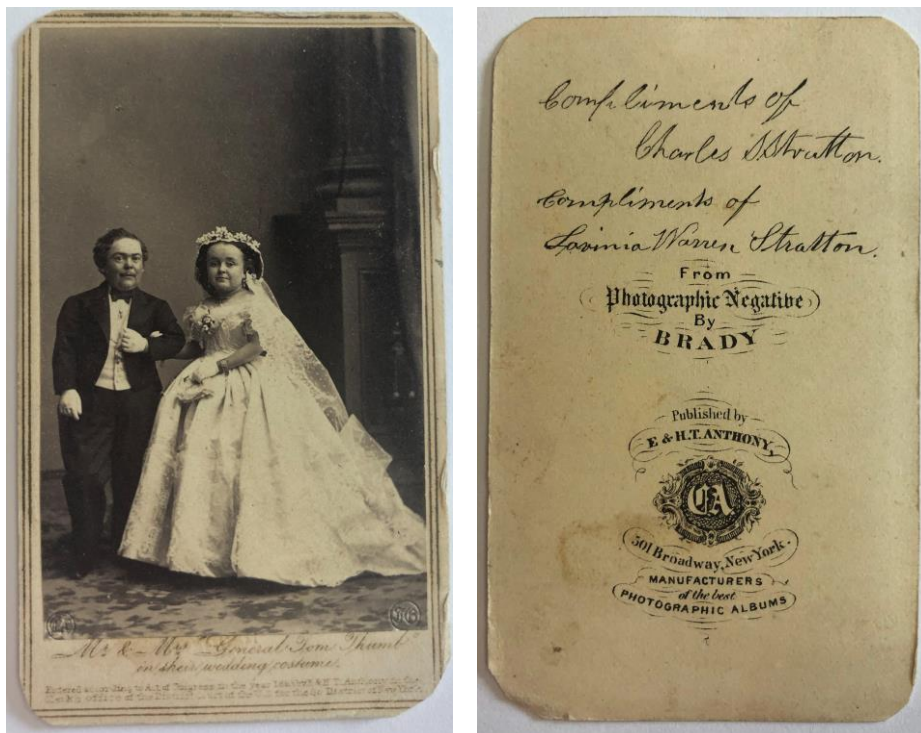 Mr. & Mrs. "General Tom Thumb"
in their wedding costume.
Entered according to Act of Congress in the Year 1863 by E & H T. Anthony in the
Clerk's office of the District Court of the U.S. for the So. District of New York.
Compliments of
Charles S. Stratton.
Compliments of
Lavinia Warren Stratton.
From
Photographic Negative
By
BRADY
Published by
E & H.T. ANTHONY,
501 Broadway, New York.
MANUFACTURERS
of the best
PHOTOGRAPHIC ALBUMS